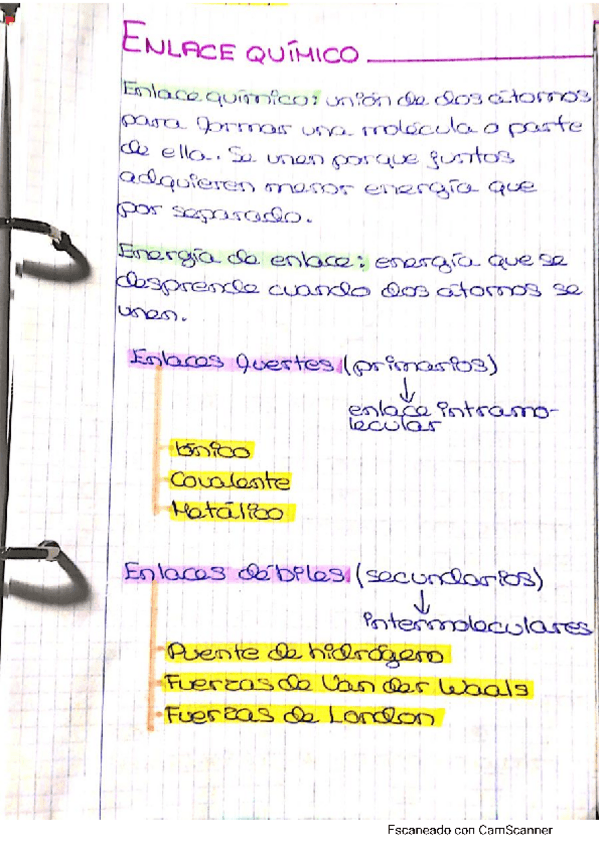 ENLACE QUÍMICO
Enlace químico: unión de dos átomos
para formar una molécula o parte
de ella. Se unen porque juntos
adquieren menor energía que
por separado.
Energía de enlace: energía que se
desprende cuando dos átomos se
unen.
Enlaces fuertes (primarios)
enlace intramo-
lecular
Iónico
Covalente
Metálico
Enlaces débiles (secundarios)
intermoleculares
Puente de hidrógeno
Fuerzas de Van der Waals
Fuerzas de London
Escaneado con CamScanner